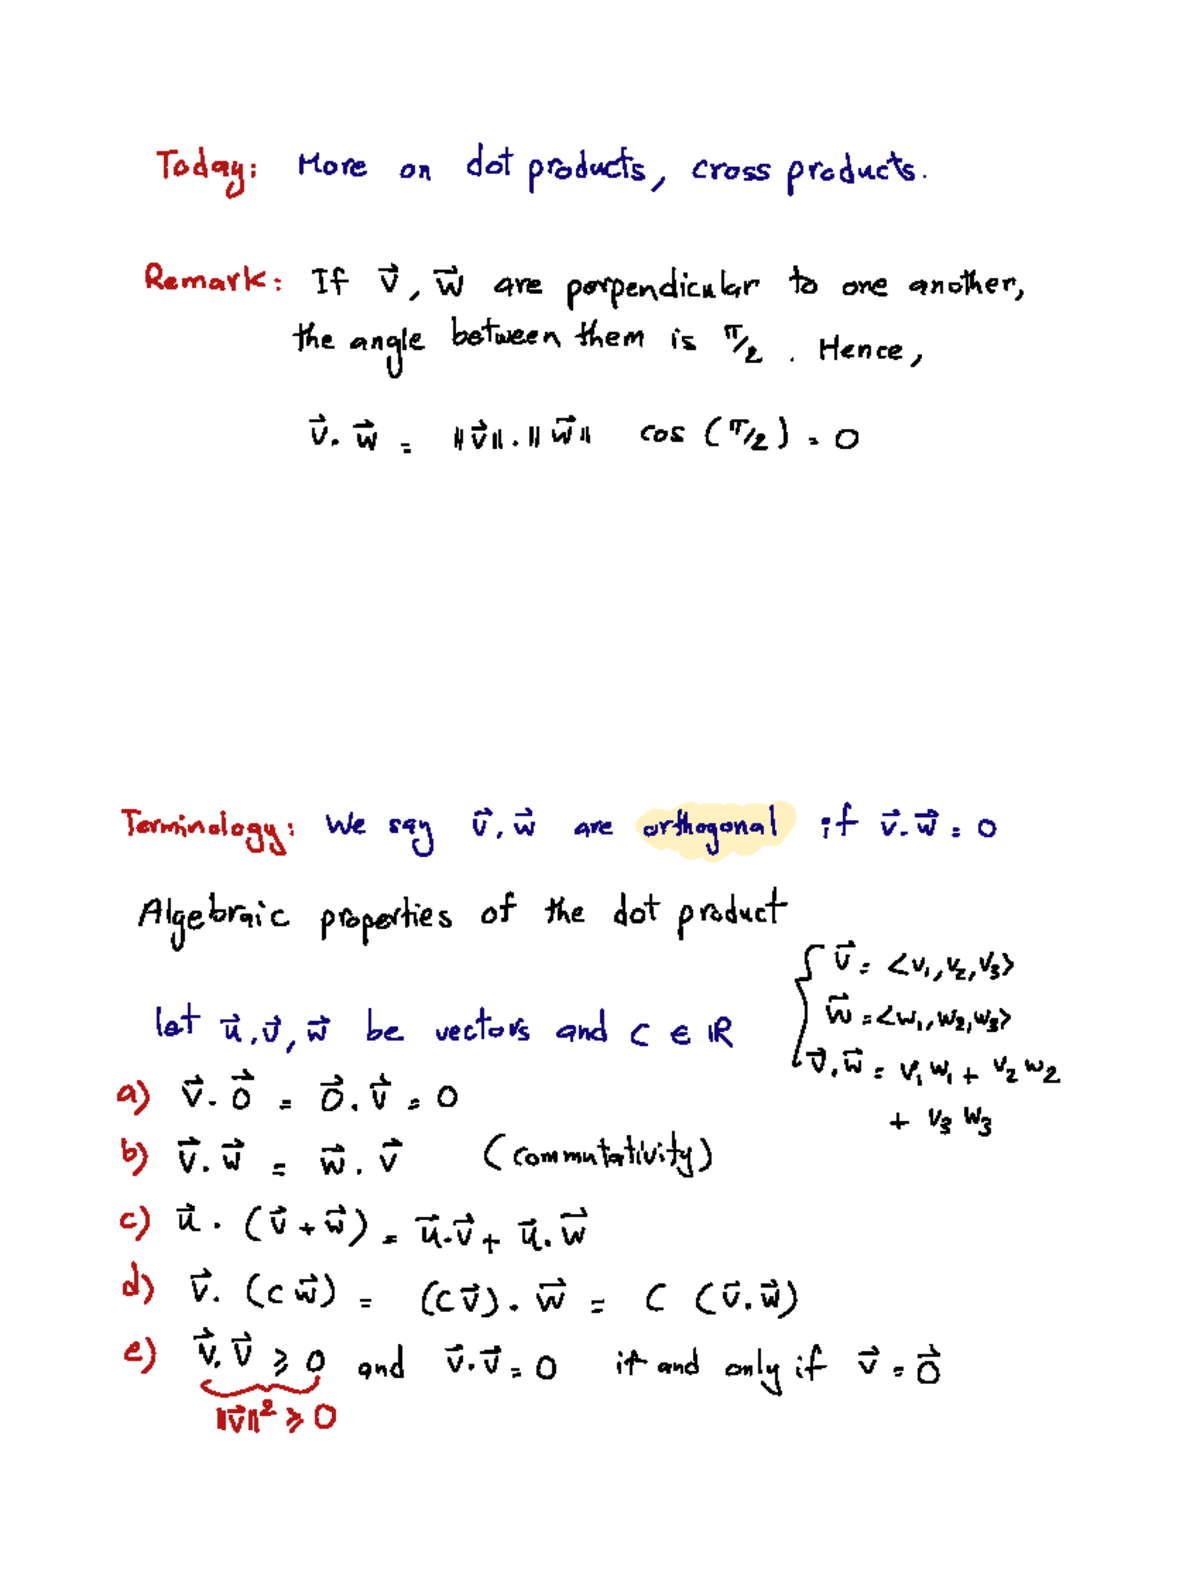 Today: More on dot products, cross products.
Remark: If v⃗, w⃗ are perpendicular to one another,
the angle between them is π/2. Hence,
v⃗. w⃗ = ||v⃗||.||w⃗|| cos (π/2) = 0
Terminology: We say v⃗, w⃗ are orthogonal if v⃗. w⃗ = 0
Algebraic properties of the dot product
v⃗ = <v₁, v₂, v₃>
w⃗ = <w₁, w₂, w₃>
v⃗. w⃗ = v₁ w₁ + v₂ w₂
+ v₃ w₃
let u⃗, v⃗, w⃗ be vectors and c ∈ ℝ
a) v⃗. 0⃗ = 0⃗. v⃗ = 0
b) v⃗. w⃗ = w⃗. v⃗ (commutativity)
c) u⃗. (v⃗ + w⃗) = u⃗. v⃗ + u⃗. w⃗
d) v⃗. (c w⃗) = (c v⃗). w⃗ = c (v⃗. w⃗)
e) v⃗. v⃗ ⩾ 0 and v⃗. v⃗ = 0 if and only if v⃗ = 0⃗
||v⃗||² ⩾ 0